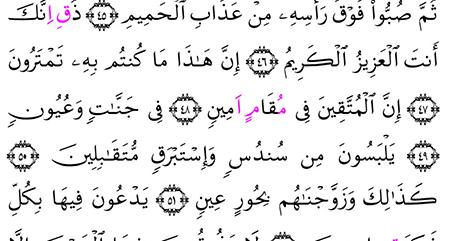 ثُمَّ صُبُّواْ فَوْقَ رَأْسِهِۦ مِنْ عَذَابِ اِ۬لْحَمِيمِ ٤٥ ذُقِ اِنَّكَ
أَنتَ اَ۬لْعَزِيزُ اُ۬لْكَرِيمُ ٤٦ إِنَّ هَٰذَا مَا كُنتُم بِهِۦ تَمْتَرُونَ
٤٧ إِنَّ اَ۬لْمُتَّقِينَ فِى مُقَامٍ اَمِينٍ ٤٨ فِى جَنَّٰتٍ وَعُيُونٍ
٤٩ يَلْبَسُونَ مِن سُندُسٍ وَإِسْتَبْرَقٍ مُّتَقَٰبِلِينَ ٥٠
كَذَٰلِكَ وَزَوَّجْنَٰهُم بِحُورٍ عِينٍ ٥١ يَدْعُونَ فِيهَا بِكُلِّ